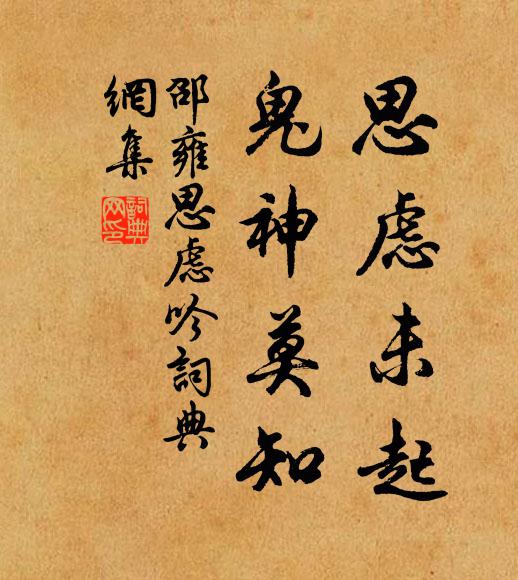 思慮未起
鬼神莫知
邵雍思慮吟詞典
網集
詞典
网印